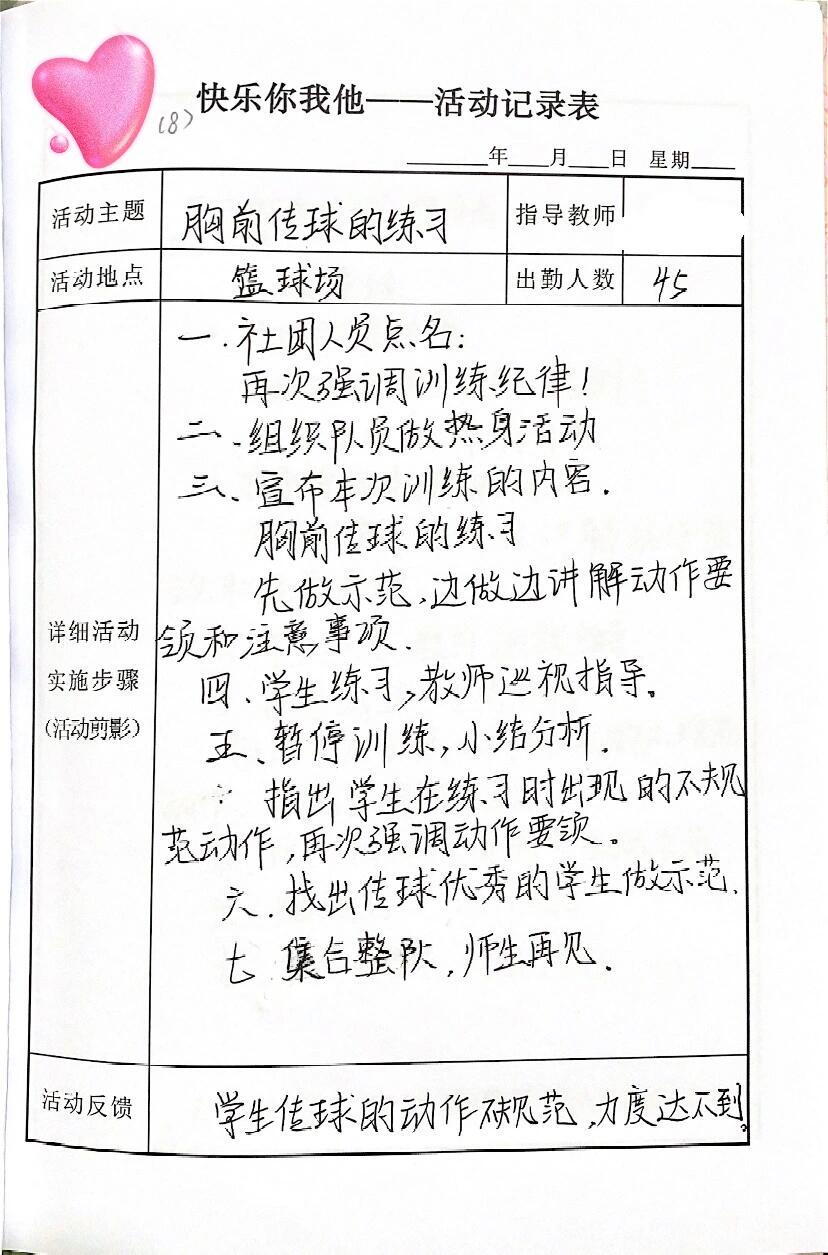 快乐你我他——活动记录表
(8)
年 月 日 星期
活动主题 胸前传球的练习 指导教师
活动地点 篮球场 出勤人数 45
详细活动
实施步骤
(活动剪影)
一.社团人员点名:
再次强调训练纪律!
二、组织队员做热身活动
三、宣布本次训练的内容.
胸前传球的练习
先做示范,边做边讲解动作要
领和注意事项.
四、学生练习,教师巡视指导。
五、暂停训练,小结分析.
指出学生在练习时出现的不规
范动作,再次强调动作要领。
六.找出传球优秀的学生做示范.
七 集合整队,师生再见.
活动反馈 学生传球的动作不规范,力度达不到。